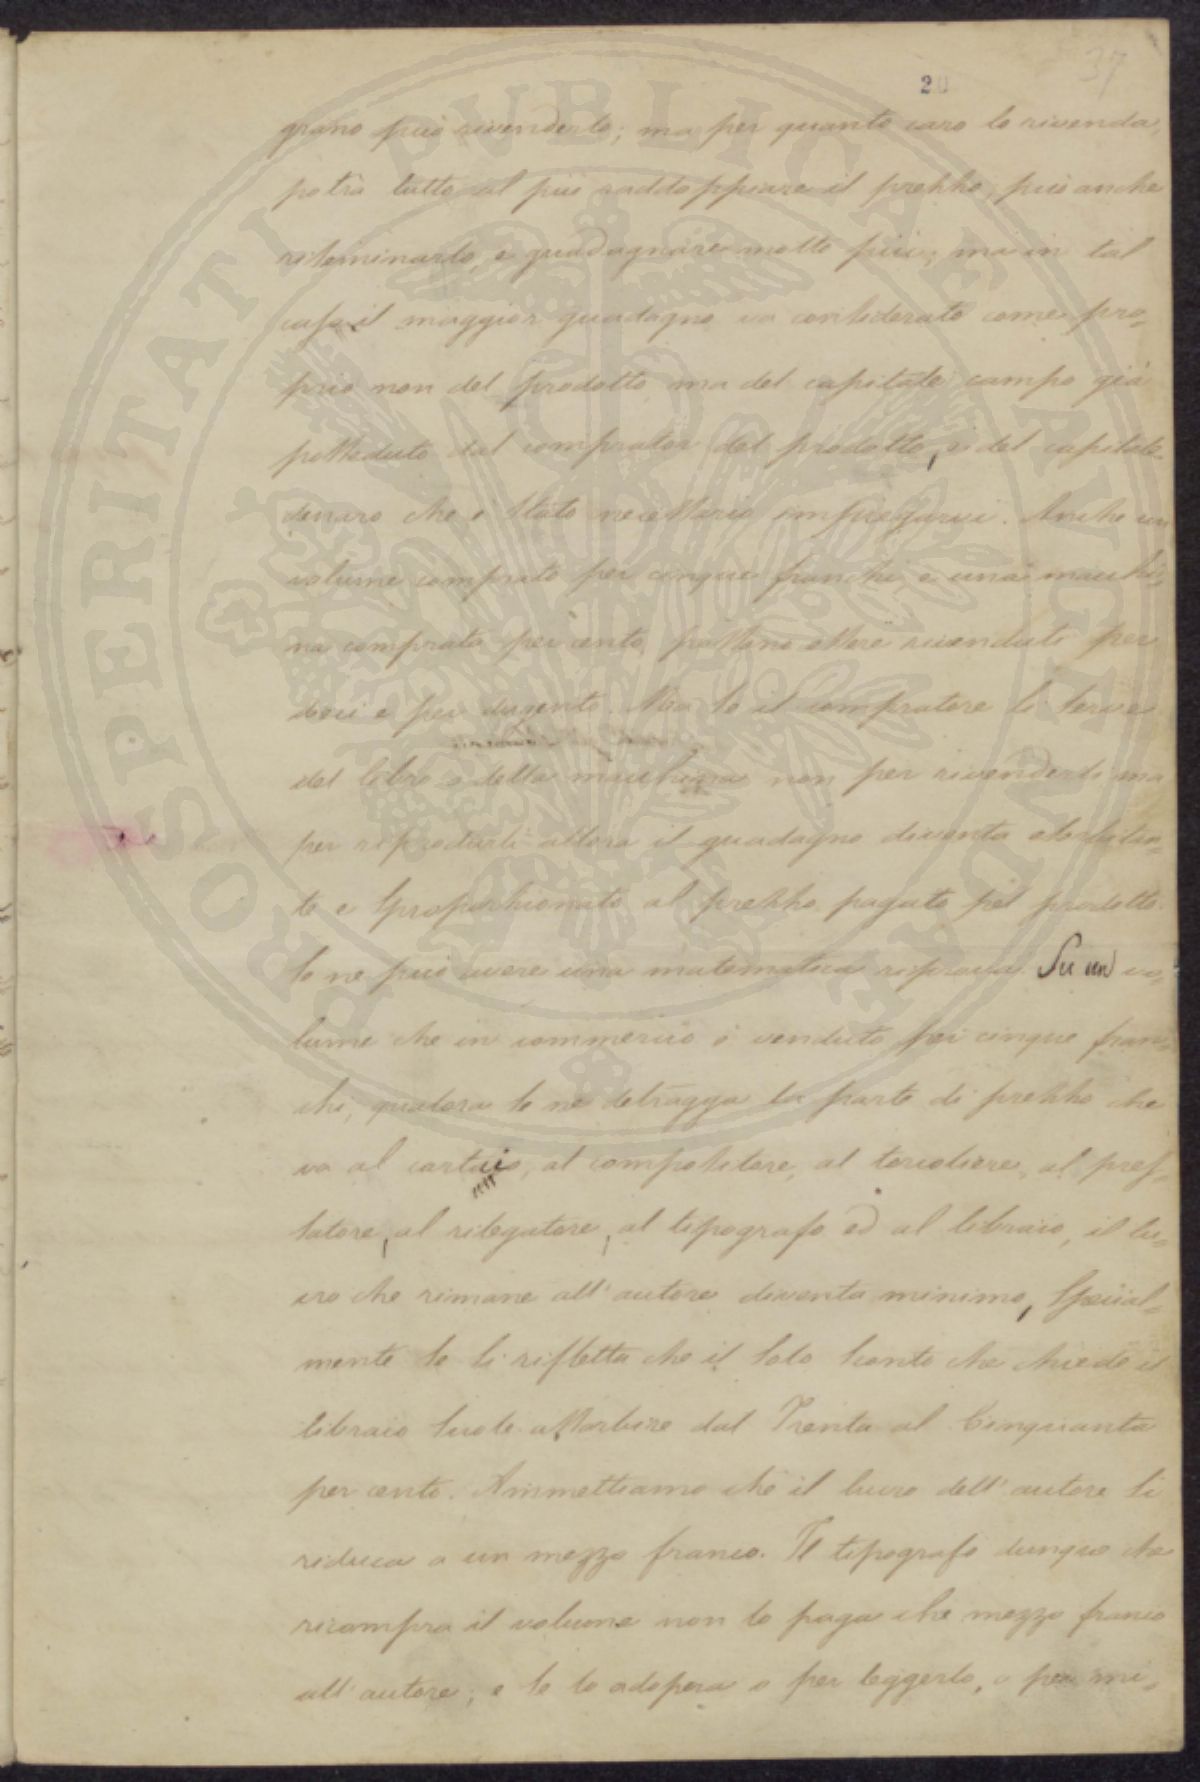 37
20
grano può rivenderlo; ma per quanto caro lo rivenda,
potrà tutto al più raddoppiare il prezzo; può anche
riseminarlo, e guadagnare molto più; ma in tal
caso il maggior guadagno va considerato come pro-
prio non del prodotto ma del capitale campo già
posseduto dal comprator del prodotto, e del capitale
denaro che è stato necessario impiegarvi. Anche un
volume comprato per cinque franchi, e una macchi-
na comprata per cento possono essere rivenduti per
dieci e per dugento. Ma se il compratore si serve
del libro o della macchina non per rivenderli ma
per riprodurli allora il guadagno diventa esorbitan-
te e sproporzionato al prezzo pagato pel prodotto.
Se ne può avere una matematica riprova. Su un vo-
lume che in commercio è venduto per cinque fran-
chi, qualora se ne detragga la parte di prezzo che
va al cartaio, al compositore, al torcoliere, al pres-
satore, al rilegatore, al tipografo ed al libraio, il lu-
cro che rimane all'autore diventa minimo, special-
mente se si rifletta che il solo sconto che chiede il
libraio suole assorbire dal Trenta al Cinquanta
per cento. Ammettiamo che il lucro dell'autore si
riduca a un mezzo franco. Il tipografo dunque che
ricompra il volume non lo paga che mezzo franco
all'autore; e se lo adopera o per leggerlo, o per mi-
PROSPERITATI PVBLICAE AVGENDAE